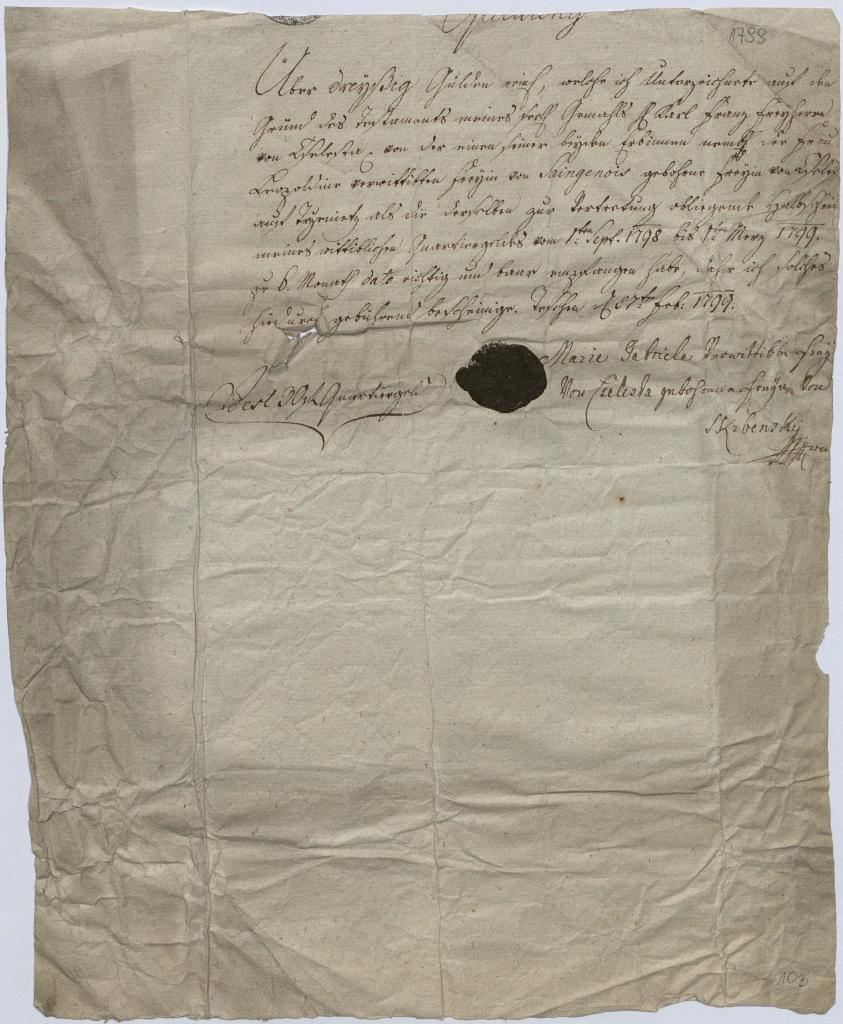 Quittung
1799
Über dreyßig Gulden reinl, welche ich Unterzeichnete aust den
Grund des Testaments meines seel Gemahls H Karl Franz Freyherrn
von Cselesta, von der einen seiner beyden Erbinnen neml der Frau
Leopoldine verwittibten Freyin von Saingenois gebohrne Freyin von Cseles
aust als die derselben zur Vertrettung obliegende Halbscheid
meines wittiblichen Quartiergeldes vom 1ten Sept. 1798 bis Merz 1799.
pr 6. Monath dato richtig und baar empfangen habe, daher ich solches
hiedurch gebührend bescheinige. Teschen d 27ten Feb: 1799.
Marie Gabriele Verwittibte Frey
Von Cselesta gebohrene Freyn Von
Skrbensky
Quartiergeld
103